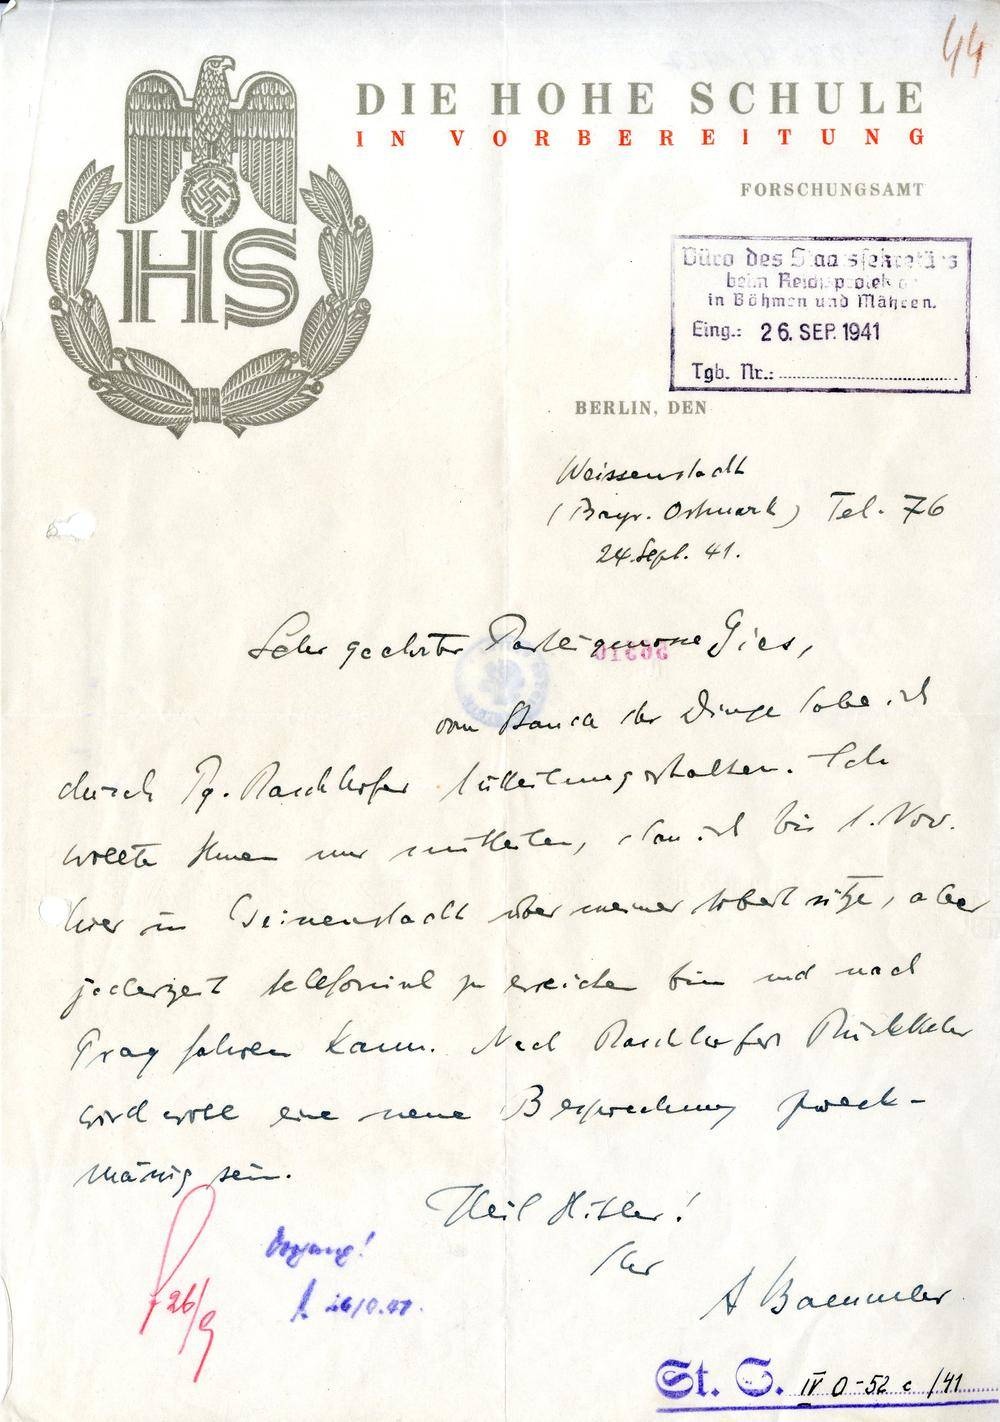 44
DIE HOHE SCHULE
IN VORBEREITUNG
FORSCHUNGSAMT
HS
Büro des Staatssekretärs
beim Reichsprotektor
in Böhmen und Mähren.
Eing.: 26. SEP. 1941
Tgb. Nr.:
BERLIN, DEN
Weissenstadt
(Bayr. Ostmark) Tel. 76
24. Sept. 41.
Sehr geehrter Parteigenosse Gies,
vom Stand der Dinge habe ich
durch Pg. Raschhofer Mitteilung erhalten. Ich
wollte Ihnen nur mitteilen, dass ich bis 1. Nov.
hier in Weissenstadt über meiner Arbeit sitze, aber
jederzeit telefonisch zu erreichen bin und nach
Prag fahren kann. Nach Raschhofers Rückkehr
wird wohl eine neue Besprechung zweck-
mässig sein.
Heil Hitler!
Ihr
A Baeumler
26/9
Vorgang!
St. S. IV O-52 c /41